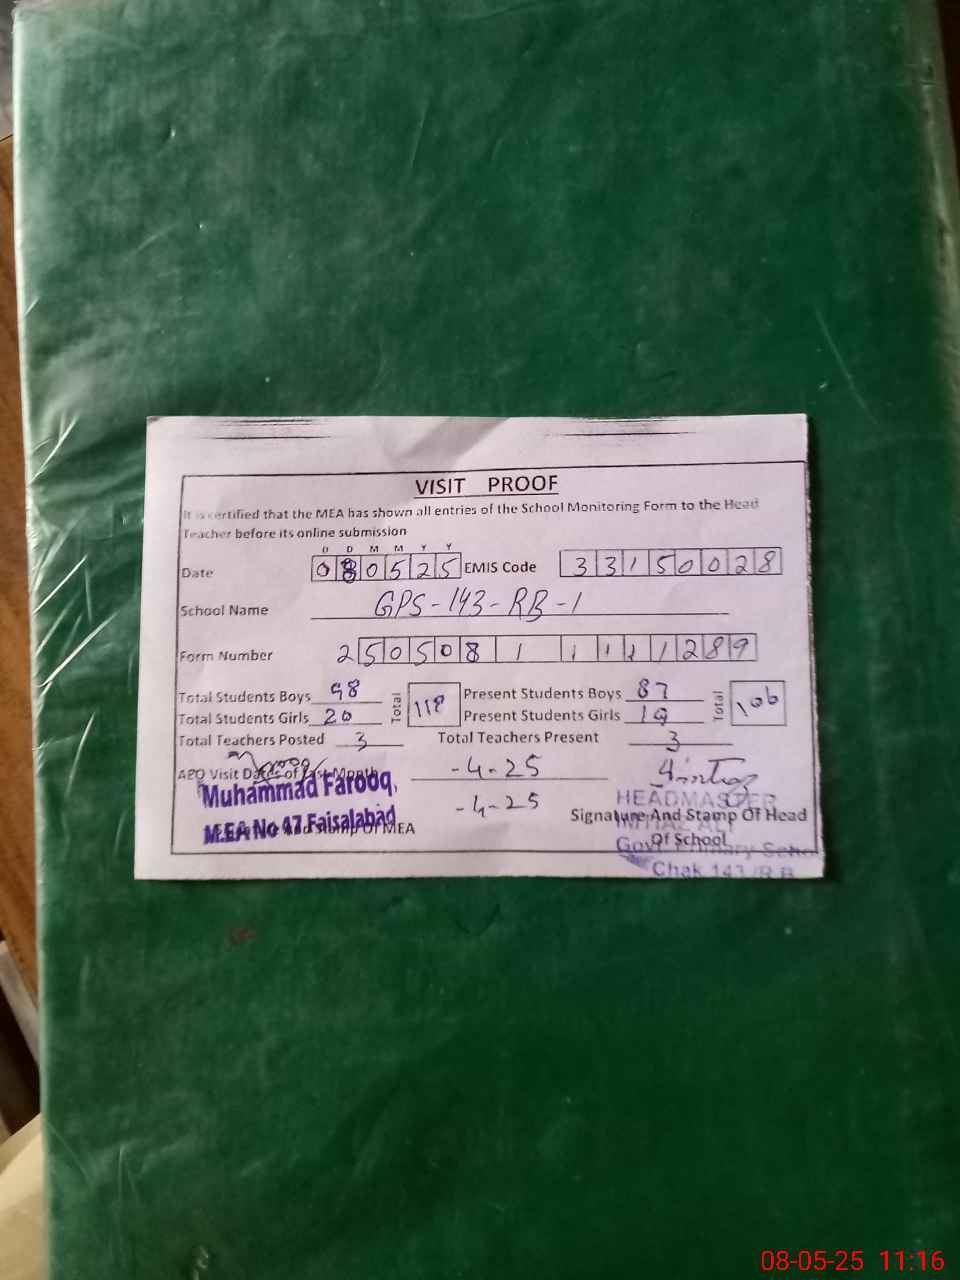 VISIT PROOF
It is certified that the MEA has shown all entries of the School Monitoring Form to the Head
Teacher before its online submission
D D M M Y Y
Date 080525 EMIS Code 33150028
School Name GPS-143-RB-1
Form Number 250508 1 1 1 1 1 289
Total Students Boys 98 Total 118 Present Students Boys 87 Total 106
Total Students Girls 20 Present Students Girls 19
Total Teachers Posted 3 Total Teachers Present 3
AEO Visit Dates of Last Month -4-25
Muhammad Farooq,
-4-25
M.EA No 47 Faisalabad
And Stamp Of MEA
HEADMASTER
Signature And Stamp Of Head
IMTIAZ ALI
Of School
Govt. Primary
Chak 143/R.B
08-05-25 11:16